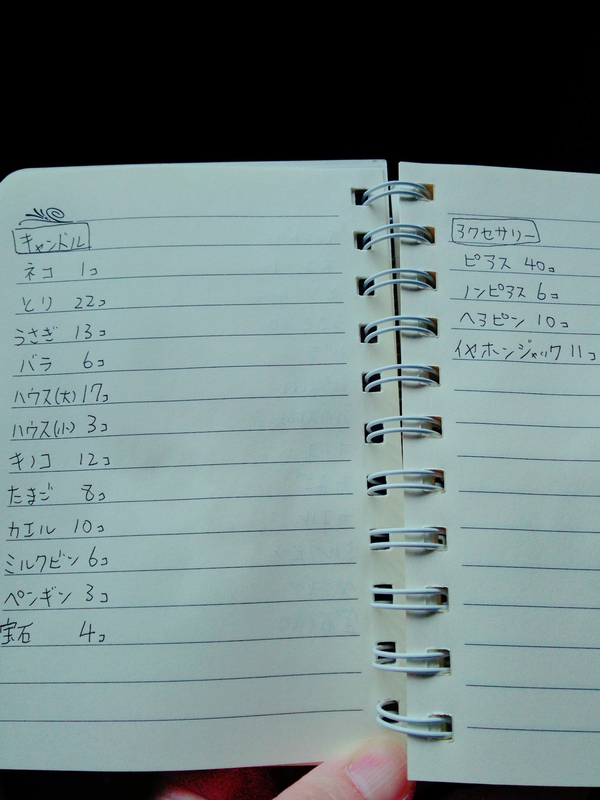 キャンドル
ネコ 1コ
とり 22コ
うさぎ 13コ
バラ 6コ
ハウス(大) 17コ
ハウス(小) 3コ
キノコ 12コ
たまご 8コ
カエル 10コ
ミルクビン 6コ
ペンギン 3コ
宝石 4コ
アクセサリー
ピアス 40コ
ノンピアス 6コ
ヘアピン 10コ
イヤホンジャック 11コ